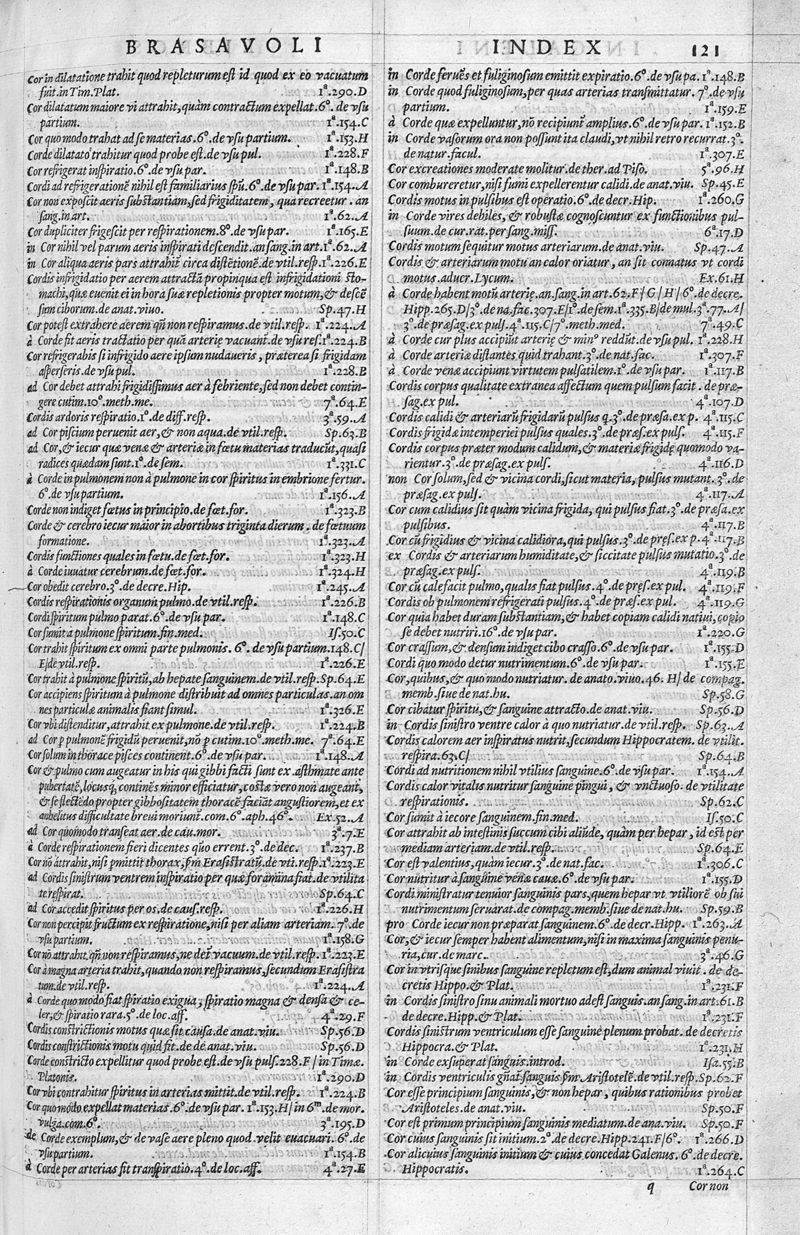 BRASAVOLI
INDEX
121
Cor in dilatatione trahit quod repleturum est id quod ex eo vacuatum
fuit.in Tim.Plat. 1ª.290.D
Cor dilatatum maiore vi attrahit, quàm contractum expellat.6°.de vsu
partium. 1ª.154.C
Cor quo modo trahat ad se materias.6°.de vsu partium. 1ª.153.H
Corde dilatato trahitur quod probe est.de vsu pul. 1ª.228.F
Cor refrigerat inspiratio.6°.de vsu par. 1ª.148.B
Cordi ad refrigerationē nihil est familiarius spũ.6°.de vsu par. 1ª.154.A
Cor non exposcit aeris substantiam, sed frigiditatem, qua recreetur. an
sang.in art. 1ª.62.A
Cor dupliciter frigescit per respirationem.8°.de vsu par. 1ª.165.E
in Cor nihil vel parum aeris inspirati descendit.an sang.in art.1ª.62.A
in Cor aliqua aeris pars attrahit̃ circa distētionē.de vtil.resp.1ª.226.E
Cordis infrigidatio per aerem attractā propinqua est infrigidationi sto-
machi, quæ euenit ei in hora suæ repletionis propter motum, & descē
sum ciborum.de anat.viuo. Sp.47.H
Cor potest extrahere aërem qñ non respiramus.de vtil.resp. 1ª.224.A
à Corde fit aeris tractatio per quā arteriæ vacuant̃.de vsu res.1ª.224.B
Cor refrigerabis si infrigido aere ipsum nudaueris, præterea si frigidam
asperseris.de vsu pul. 1ª.228.B
ad Cor debet attrahi frigidissimus aer à febriente, sed non debet contin-
gere cutim.10°.meth.me. 7ª.64.E
Cordis ardoris respiratio.1°.de diff.resp. 3ª.59.A
ad Cor piscium peruenit aer, & non aqua.de vtil.resp. Sp.63.B
ad Cor, & iecur quæ venæ & arteriæ in fœtu materias traducūt, quasi
radices quædam sunt.1°.de sem. 1ª.331.C
à Corde in pulmonem non à pulmone in cor spiritus in embrione fertur.
6°.de vsu partium. 1ª.156.A
Corde non indiget fœtus in principio.de fœt.for. 1ª.323.B
Corde & cerebro iecur maior in abortibus triginta dierum. de fœtuum
formatione. 1ª.323.A
Cordis functiones quales in fœtu.de fœt.for. 1ª.323.H
à Corde iuuatur cerebrum.de fœt.for. 1ª.324.H
Cor obedit cerebro.3°.de decre.Hip. 1ª.245.A
Cordis respirationis organum pulmo.de vtil.resp. 1ª.226.B
Cordi spiritum pulmo parat.6°.de vsu par. 1ª.148.C
Cor sumit à pulmone spiritum.fin.med. Is.50.C
Cor trahit spiritum ex omni parte pulmonis. 6°.de vsu partium.148.C/
E/de vtil.resp. 1ª.226.E
Cor trahit à pulmone spiritũ, ab hepate sanguinem.de vtil.resp.Sp.64.E
Cor accipiens spiritum à pulmone distribuit ad omnes particulas.an om
nes particulæ animalis fiant simul. 1ª.326.E
Cor vbi distenditur, attrahit ex pulmone.de vtil.resp. 1ª.224.B
ad Cor p pulmonē frigidũ peruenit, nō p cutim.10°.meth.me. 7ª.64.E
Cor solum in thorace pisces continent.6°.de vsu par. 1ª.148.A
Cor & pulmo cum augeatur in his qui gibbi facti sunt ex asthmate ante
pubertatē, locusq; continēs minor efficiatur, costæ vero non augeant,
& se flectēdo propter gibbositatem thoracē faciāt angustiorem, et ex
anhelitus difficultate breui moriunt̃.com.6°.aph.46°. Ex.52.A
ad Cor quomodo transeat aer.de cau.mor. 3ª.7.E
à Corde respirationem fieri dicentes quo errent.3°.de dec. 1ª.237.B
Cor nō attrahit, nisi pmittit thorax, ſm Erasistratũ.de vti.resp.1ª.223.E
ad Cordis sinistrum ventrem inspiratio per quæ foramina fiat.de vtilita
te respirat. Sp.64.C
ad Cor accedit spiritus per os.de caus.resp. 1ª.226.H
Cor non percipit fructum ex respiratione, nisi per aliam arteriam. 7°.de
vsu partium. 1ª.158.G
Cor nō attrahit, qñ non respiramus, ne det̃ vacuum.de vtil.resp. 1ª.223.E
Cor à magna arteria trahit, quando non respiramus, secundum Erasistra
tum.de vtil.resp. 1ª.224.A
à Corde quo modo fiat spiratio exigua, spiratio magna & densa & ce-
ler, & spiratio rara.5°.de loc.aff. 4ª.29.F
Cordis constrictionis motus quæ sit causa.de anat.viu. Sp.56.D
Cordis constrictionis motu quid fit.de de anat.viu. Sp.56.D
Corde constricto expellitur quod probe est.de vsu puls.228.F/in Timæ.
Platonis. 1ª.290.D
Cor vbi contrahitur spiritus in arterias mittit.de vtil.resp. 1ª.224.B
Cor quo modo expellat materias.6°.de vsu par. 1ª.153.H/in 6m.de mor.
vulga.com.6°. 3ª.195.D
de Corde exemplum, & de vase aere pleno quod velit euacuari. 6°.de
vsu partium. 1ª.154.B
à Corde per arterias fit transpiratio.4°.de loc.aff. 4ª.27.E
in Corde feruēs et fuliginosum emittit expiratio.6°.de vsu pa. 1ª.148.B
in Corde quod fuliginosum, per quas arterias transmittatur. 7°.de vsu
partium. 1ª.159.E
à Corde quæ expelluntur, nō recipiunt̃ amplius.6°.de vsu par. 1ª.152.B
in Corde vasorum ora non possunt ita claudi, vt nihil retro recurrat.3°.
de natur.facul. 1ª.307.E
Cor excreationes moderate molitur.de ther.ad Piso. 5ª.96.H
Cor combureretur, nisi fumi expellerentur calidi.de anat.viu. Sp.45.E
Cordis motus in pulsibus est operatio.6°.de decr.Hip. 1ª.260.G
in Corde vires debiles, & robustæ cognoscuntur ex functionibus pul-
suum.de cur.rat.per sang.miss. 6ª.17.D
Cordis motum sequitur motus arteriarum.de anat.viu. Sp.47.A
Cordis & arteriarum motu an calor oriatur, an sit connatus vt cordi
motus.aduer.Lycum. Ex.61.H
à Corde habent motũ arteriæ.an.sang.in art.62.F/G/H/6°.de decre.
Hipp.265.D/3°.de na.fac.307.E/1°.de sem.1ª.335.B/de mul.3ª.77.A/
3°.de præsag.ex pul.4ª.115.C/7°.meth.med. 7ª.49.C
à Corde cur plus accipiũt arteriæ & min° reddūt.de vsu pul. 1ª.228.H
à Corde arteriæ distantes quid trahant.3°.de nat.fac. 1ª.307.F
à Corde venæ accipiunt virtutem pulsatilem.1°.de vsu par. 1ª.117.B
Cordis corpus qualitate extranea affectum quem pulsum facit. de præ-
sag.ex pul. 4ª.107.D
Cordis calidi & arteriarũ frigidarũ pulsus q.3°.de præsa.ex p. 4ª.115.C
Cordis frigidæ intemperiei pulsus quales.3°.de præs.ex puls. 4ª.115.F
Cordis corpus præter modum calidum, & materiæ frigidæ quomodo va-
rientur.3°.de præsag.ex puls. 4ª.116.D
non Cor solum, sed & vicina cordi, sicut materia, pulsus mutant. 3°.de
præsag.ex pul. 4ª.117.A
Cor cum calidius sit quàm vicina frigida, qui pulsus fiat.3°.de præsa.ex
pulsibus. 4ª.117.B
Cor cũ frigidius & vicina calidiora, qui pulsus.3°.de pres.ex p.4ª.117.B
ex Cordis & arteriarum humiditate, & siccitate pulsus mutatio.3°.de
præsag.ex puls. 4ª.119.B
Cor cũ calefacit pulmo, qualis fiat pulsus.4°.de pres.ex pul. 4ª.119.F
Cordis ob pulmonem refrigeratũ pulsus.4°.de præs.ex pul. 4ª.119.G
Cor quia habet duram substantiam, & habet copiam calidi natiui, copio
se debet nutriri.16°.de vsu par. 1ª.220.G
Cor crassum, & densum indiget cibo crasso.6°.de vsu par. 1ª.155.D
Cordi quo modo detur nutrimentum.6°.de vsu par. 1ª.155.E
Cor, quibus, & quo modo nutriatur.de anato.viuo.46. H/ de compag.
memb.siue de nat.hu. Sp.58.G
Cor cibatur spiritu, & sanguine attracto.de anat.viu. Sp.56.D
in Cordis sinistro ventre calor à quo nutriatur.de vtil.resp. Sp.63.A
Cordis calorem aer inspiratus nutrit, secundum Hippocratem. de vtilit.
respira.63.C/ Sp.64.B
Cordi ad nutritionem nihil vtilius sanguine.6°.de vsu par. 1ª.154.A
Cordis calor vitalis nutritur sanguine pingui, & vnctuoso. de vtilitate
respirationis. Sp.62.C
Cor sumit à iecore sanguinem.fin.med. Is.50.C
Cor attrahit ab intestinis succum cibi aliũde, quàm per hepar, id est per
mediam arteriam.de vtil.resp. Sp.64.E
Cor est valentius, quàm iecur.3°.de nat.fac. 1ª.306.C
Cor nutritur à sanguine venæ cauæ.6°.de vsu par. 1ª.155.D
Cordi ministratur tenuior sanguinis pars, quem hepar vt vtiliorē ob sui
nutrimentum seruarat.de compag.memb.siue de nat.hu. Sp.59.B
pro Corde iecur non præparat sanguinem.6°.de decr.Hipp. 1ª.263.A
Cor, & iecur semper habent alimentum, nisi in maxima sanguinis penu-
ria, cur.de marc. 3ª.46.G
Cor in vtrisque sinibus sanguine repletum est, dum animal viuit. de de-
cretis Hippo.& Plat. 1ª.231.F
in Cordis sinistro sinu animali mortuo adest sanguis.an sang.in art.61.B
de decre.Hipp.& Plat. 1ª.231.F
Cordis sinistrum ventriculum esse sanguine plenum probat.de decretis
Hippocra.& Plat. 1ª.231.H
in Corde exsuperat sanguis.introd. Isa.55.B
in Cordis ventriculis gñat̃ sanguis ſm Aristotelē.de vtil.resp.Sp.62.F
Cor esse principium sanguinis, & non hepar, quibus rationibus probet
Aristoteles.de anat.viu. Sp.50.F
Cor est primum principium sanguinis mediatum.de ana.viu. Sp.50.F
Cor cuius sanguinis sit initium.2°.de decre.Hipp.241.F/6°. 1ª.266.D
Cor alicuius sanguinis initium & cuius concedat Galenus.6°.de decre.
Hippocratis. 1ª.264.C
q Cor non